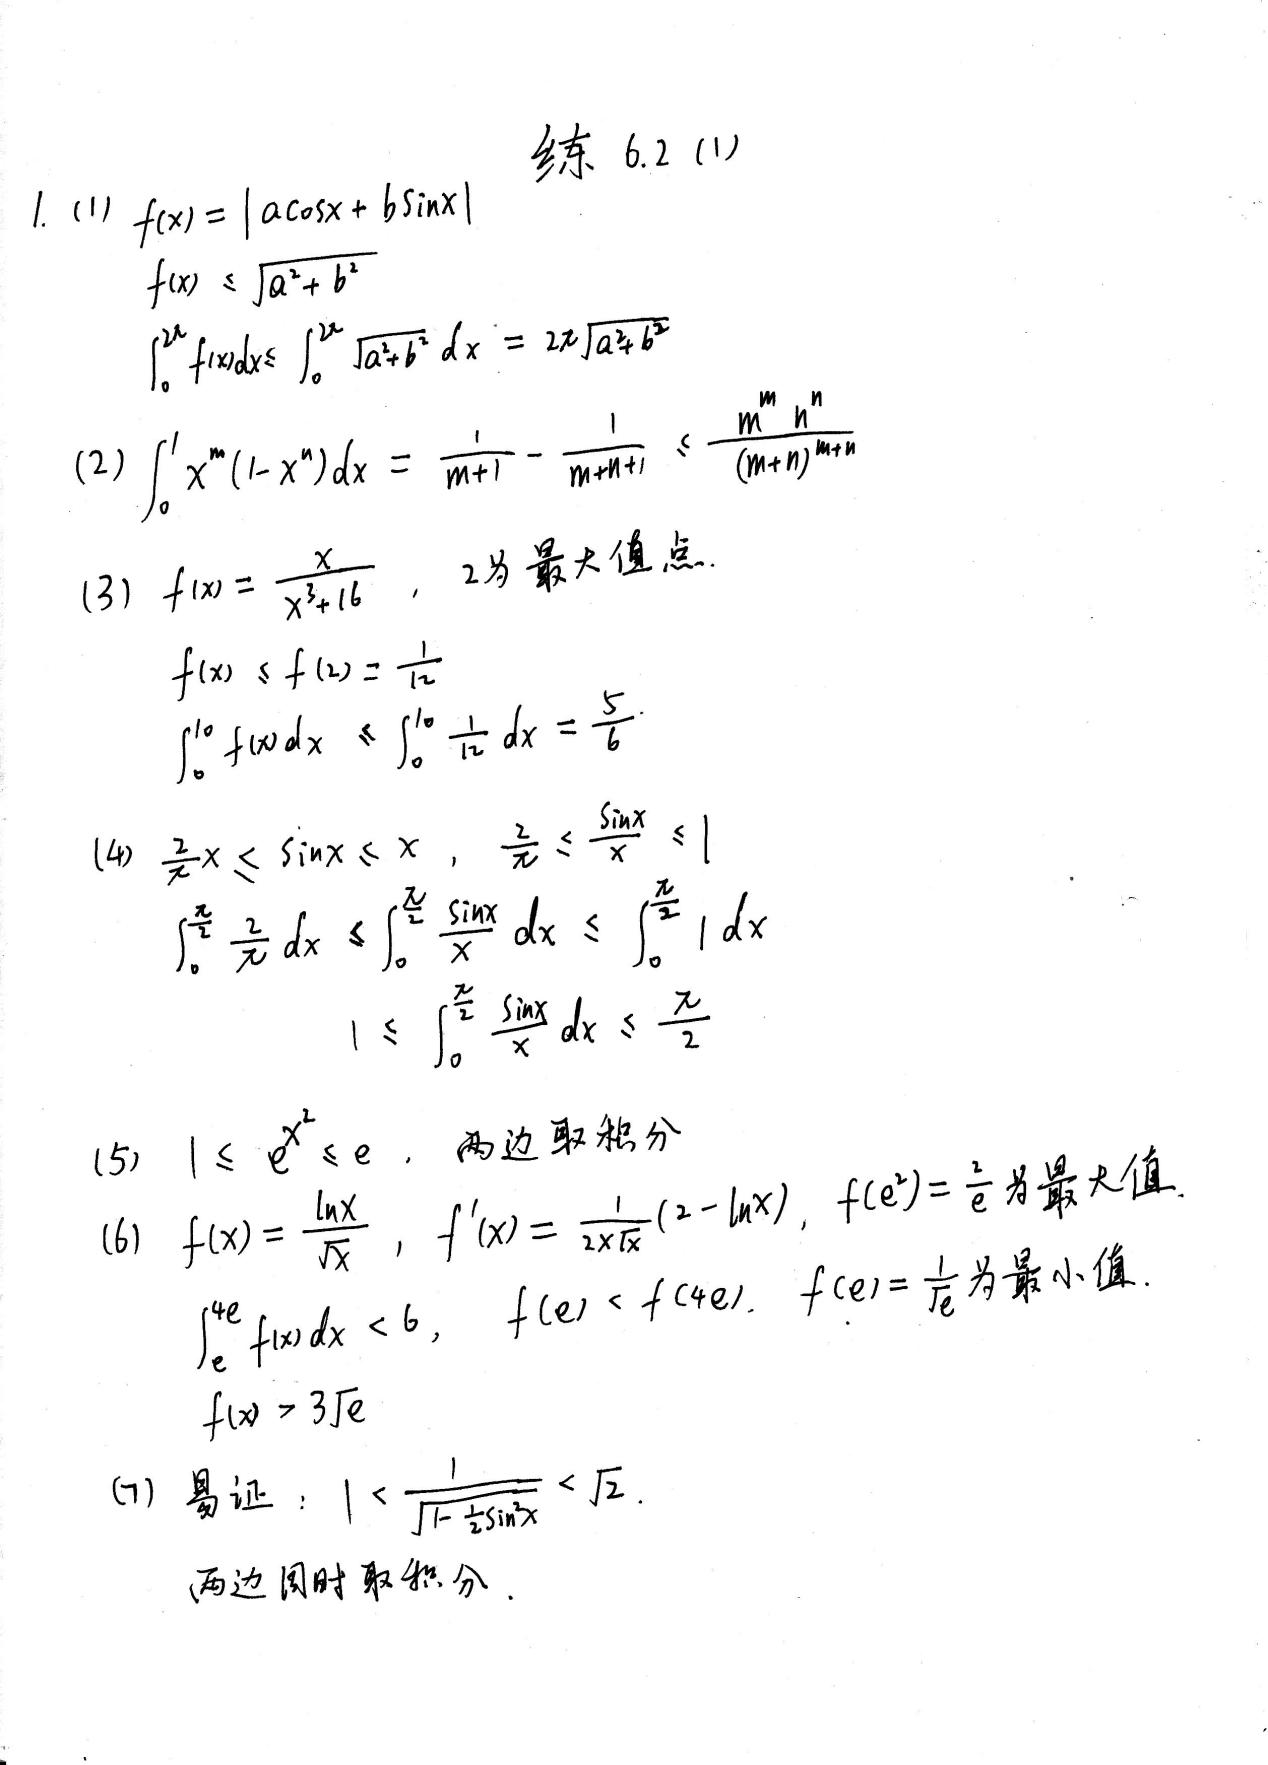 练 6.2 (1)
1. (1) f(x) = |acosx + bsinx|
f(x) ≤ √(a²+b²)
∫₀^{2π} f(x)dx ≤ ∫₀^{2π} √(a²+b²) dx = 2π√(a²+b²)
(2) ∫₀^1 x^m(1-x^n)dx = 1/(m+1) - 1/(m+n+1) ≤ m^m n^n/(m+n)^{m+n}
(3) f(x) = x/(x³+16) , 2为最大值点.
f(x) ≤ f(2) = 1/12
∫₀^{10} f(x)dx ≤ ∫₀^{10} 1/12 dx = 5/6.
(4) 2/π x ≤ sinx ≤ x , 2/π ≤ sinx/x ≤ 1
∫₀^{π/2} 2/π dx ≤ ∫₀^{π/2} sinx/x dx ≤ ∫₀^{π/2} 1 dx
1 ≤ ∫₀^{π/2} sinx/x dx ≤ π/2
(5) 1 ≤ e^{x²} ≤ e . 两边取积分
(6) f(x) = lnx/√x , f'(x) = 1/(2x√x) (2-lnx), f(e²) = 2/e 为最大值.
∫_e^{4e} f(x)dx < 6, f(e) < f(4e). f(e) = 1/√e 为最小值.
f(x) > 3√e
(7) 易证: 1 < 1/√(1-½sin²x) < √2.
两边同时取积分.